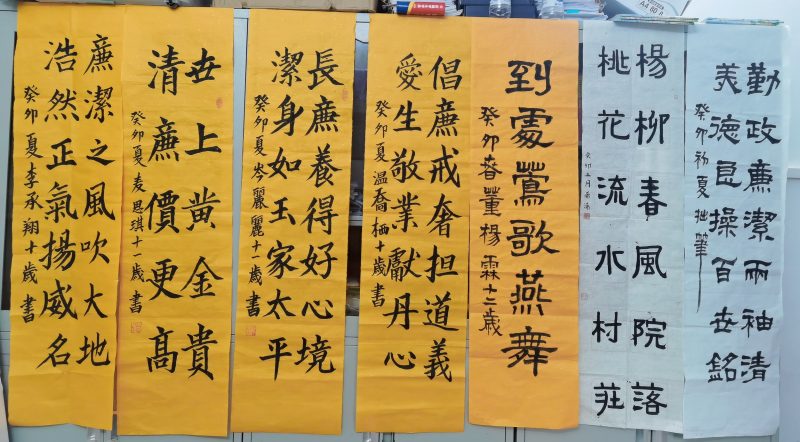 勤政廉潔兩袖清
美德良操百世銘
癸卯初夏拙筆
楊柳春風院落
桃花流水村莊
到處鶯歌燕舞
癸卯春董楊霖十二歲
倡廉戒奢担道義
愛生敬業獻丹心
癸卯夏温喬栖十歲書
長廉養得好心境
潔身如玉家太平
癸卯夏岑麗麗十一歲書
世上黄金貴
清廉價更高
癸卯夏麦思琪十一歲書
廉潔之風吹大地
浩然正氣揚威名
癸卯夏李承翔十歲書
A4 80